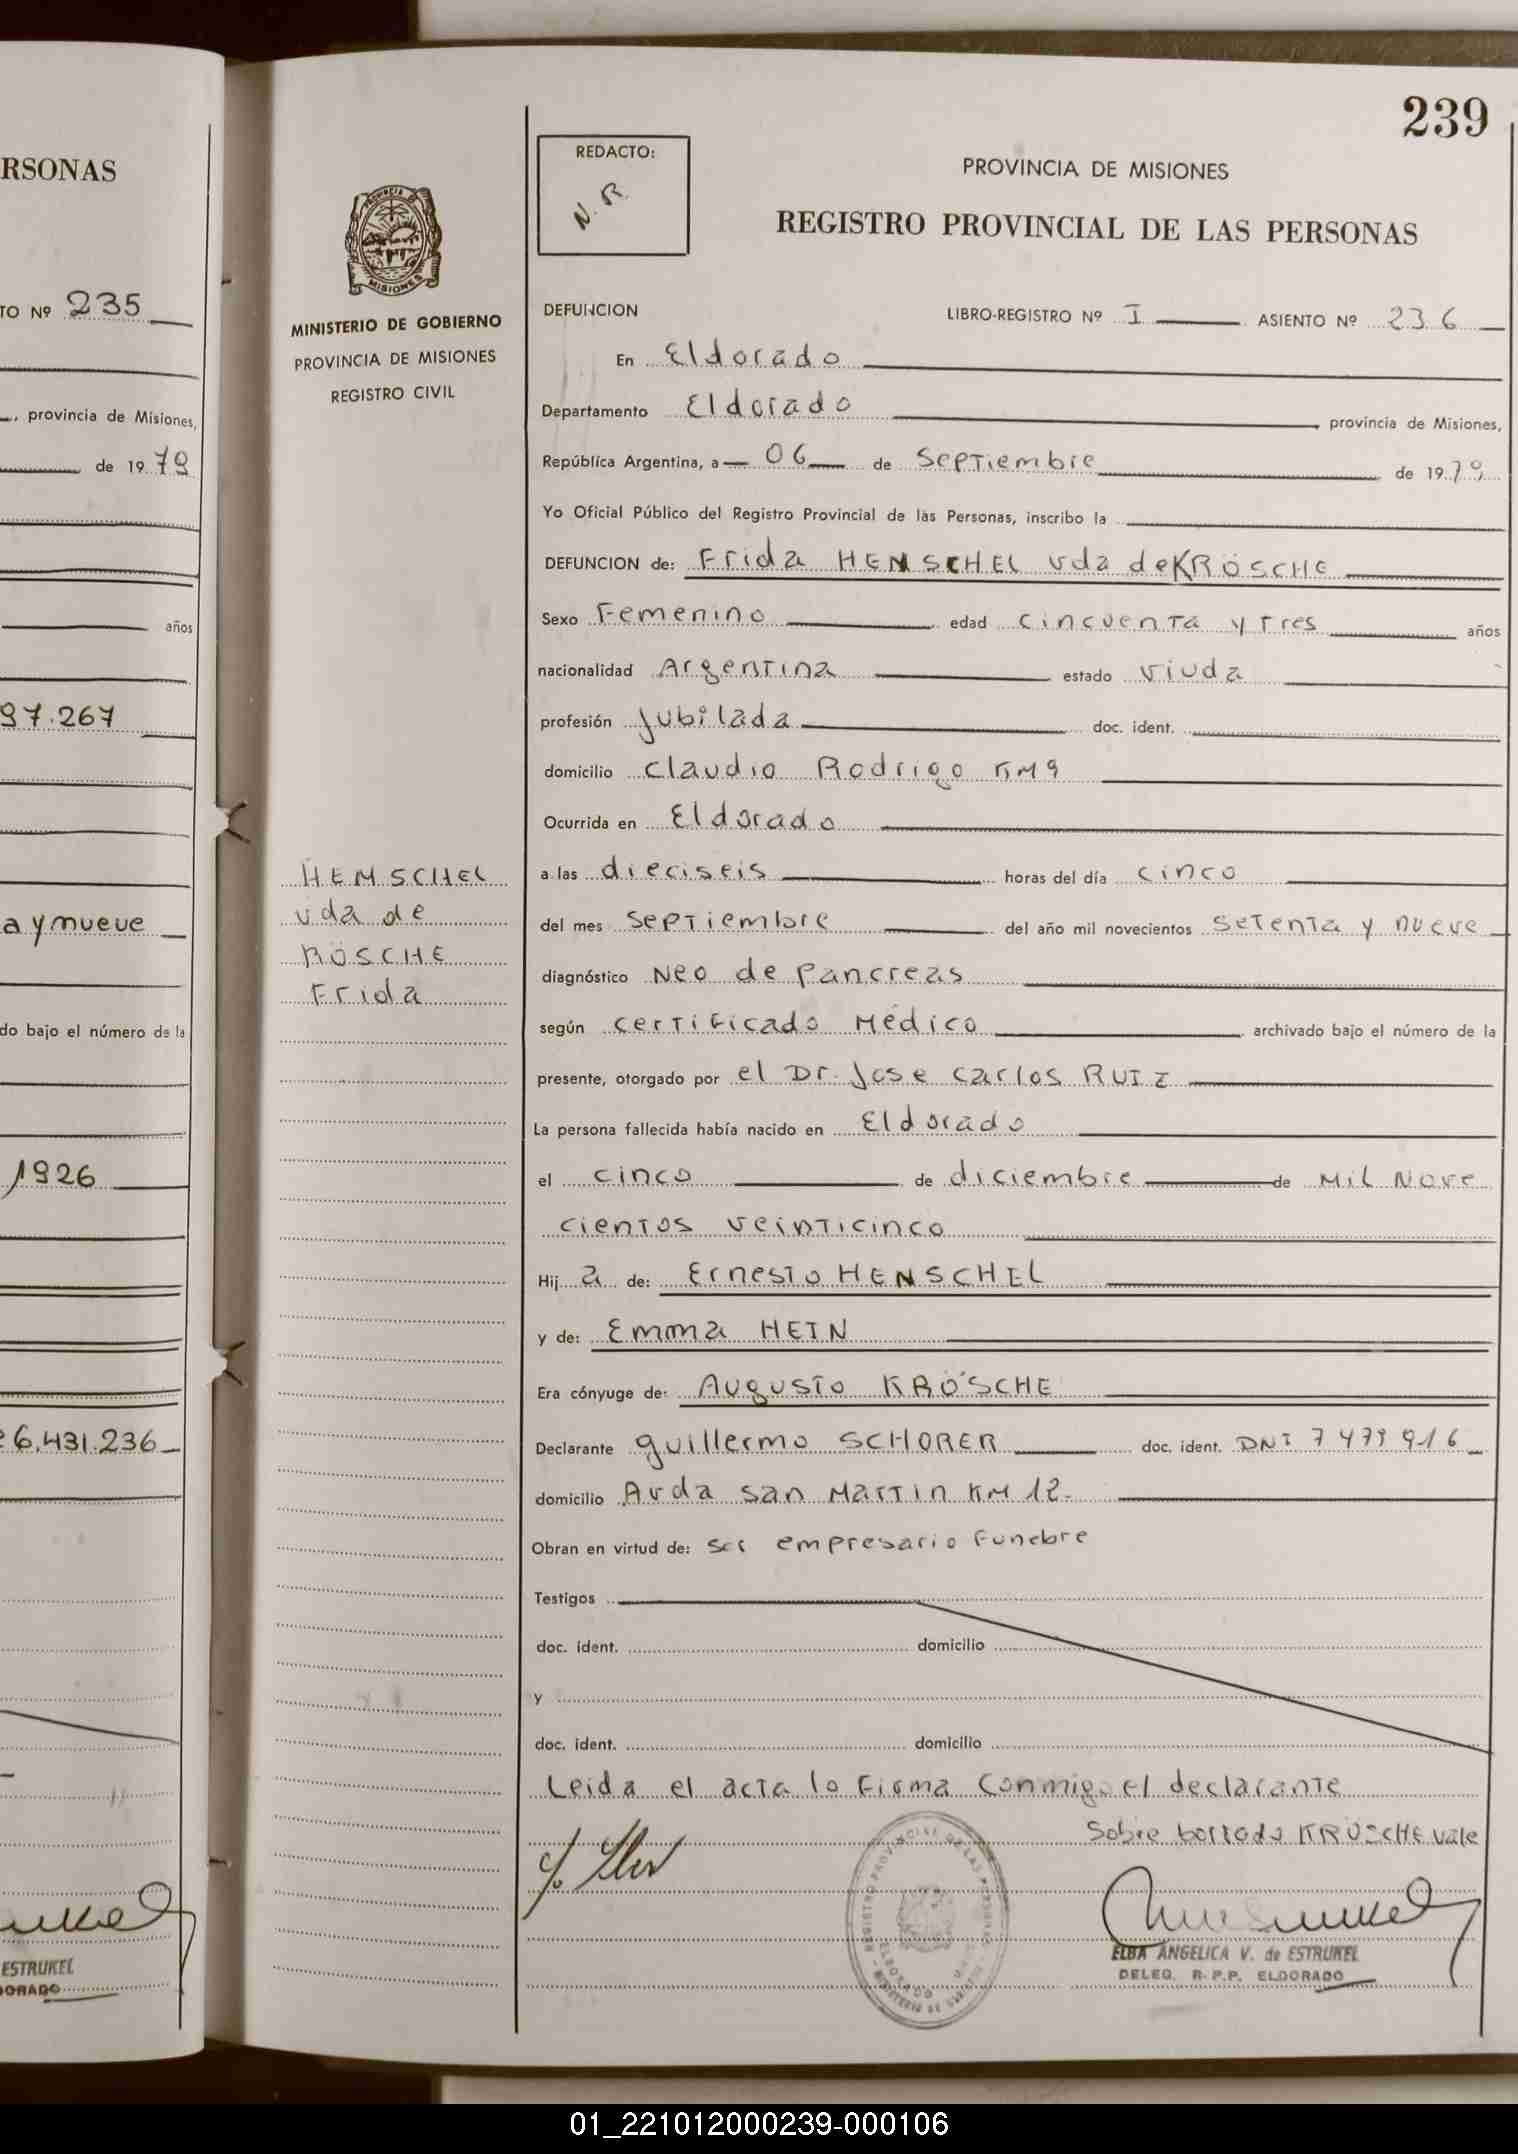 RSONAS
TO Nº 235
, provincia de Misiones,
de 19 79
años
97.267
a y nueve
do bajo el número de la
1926
6.431.236
ESTRUKEL
DORADO
MINISTERIO DE GOBIERNO
PROVINCIA DE MISIONES
REGISTRO CIVIL
HENSCHEL
vda de
RÖSCHE
Frida
239
REDACTO:
N.R.
PROVINCIA DE MISIONES
REGISTRO PROVINCIAL DE LAS PERSONAS
DEFUNCION LIBRO-REGISTRO Nº I ASIENTO Nº 236
En Eldorado
Departamento Eldorado provincia de Misiones,
República Argentina, a 06 de Septiembre de 1979
Yo Oficial Público del Registro Provincial de las Personas, inscribo la
DEFUNCION de: Frida HENSCHEL vda de KRÖSCHE
Sexo Femenino edad cincuenta y tres años
nacionalidad Argentina estado viuda
profesión jubilada doc. ident.
domicilio Claudio Rodrigo KM 9
Ocurrida en Eldorado
a las dieciseis horas del día cinco
del mes septiembre del año mil novecientos setenta y nueve
diagnóstico Neo de pancreas
según certificado Médico archivado bajo el número de la
presente, otorgado por el Dr. Jose Carlos RUIZ
La persona fallecida había nacido en Eldorado
el cinco de diciembre de Mil Nove
cientos veinticinco
Hij a de: Ernesto HENSCHEL
y de: Emma HEIN
Era cónyuge de: Augusto KRÖSCHE
Declarante guillermo SCHORER doc. ident. DNI 7479916
domicilio Avda san Martin KM 12.
Obran en virtud de: ser empresario Funebre
Testigos
doc. ident. domicilio
y
doc. ident. domicilio
Leida el acta lo Firma conmigo el declarante
Sobre borrado KRÖSCHE vale
REGISTRO PROVINCIAL DE LAS PERSONAS
ELDORADO
MINISTERIO DE GOBIERNO
ELBA ANGELICA V. de ESTRUKEL
DELEG. R.P.P. ELDORADO
01_221012000239-000106